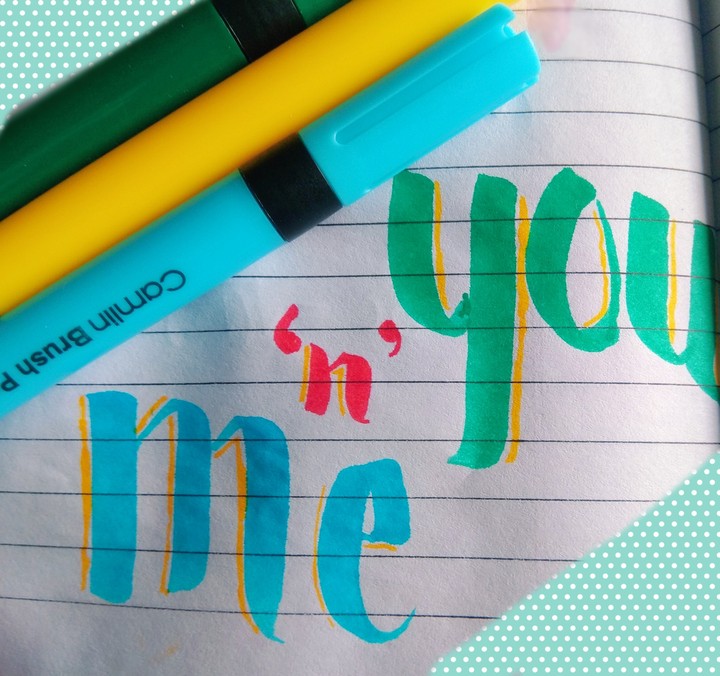 Camlin Brush P
you
'n'
me